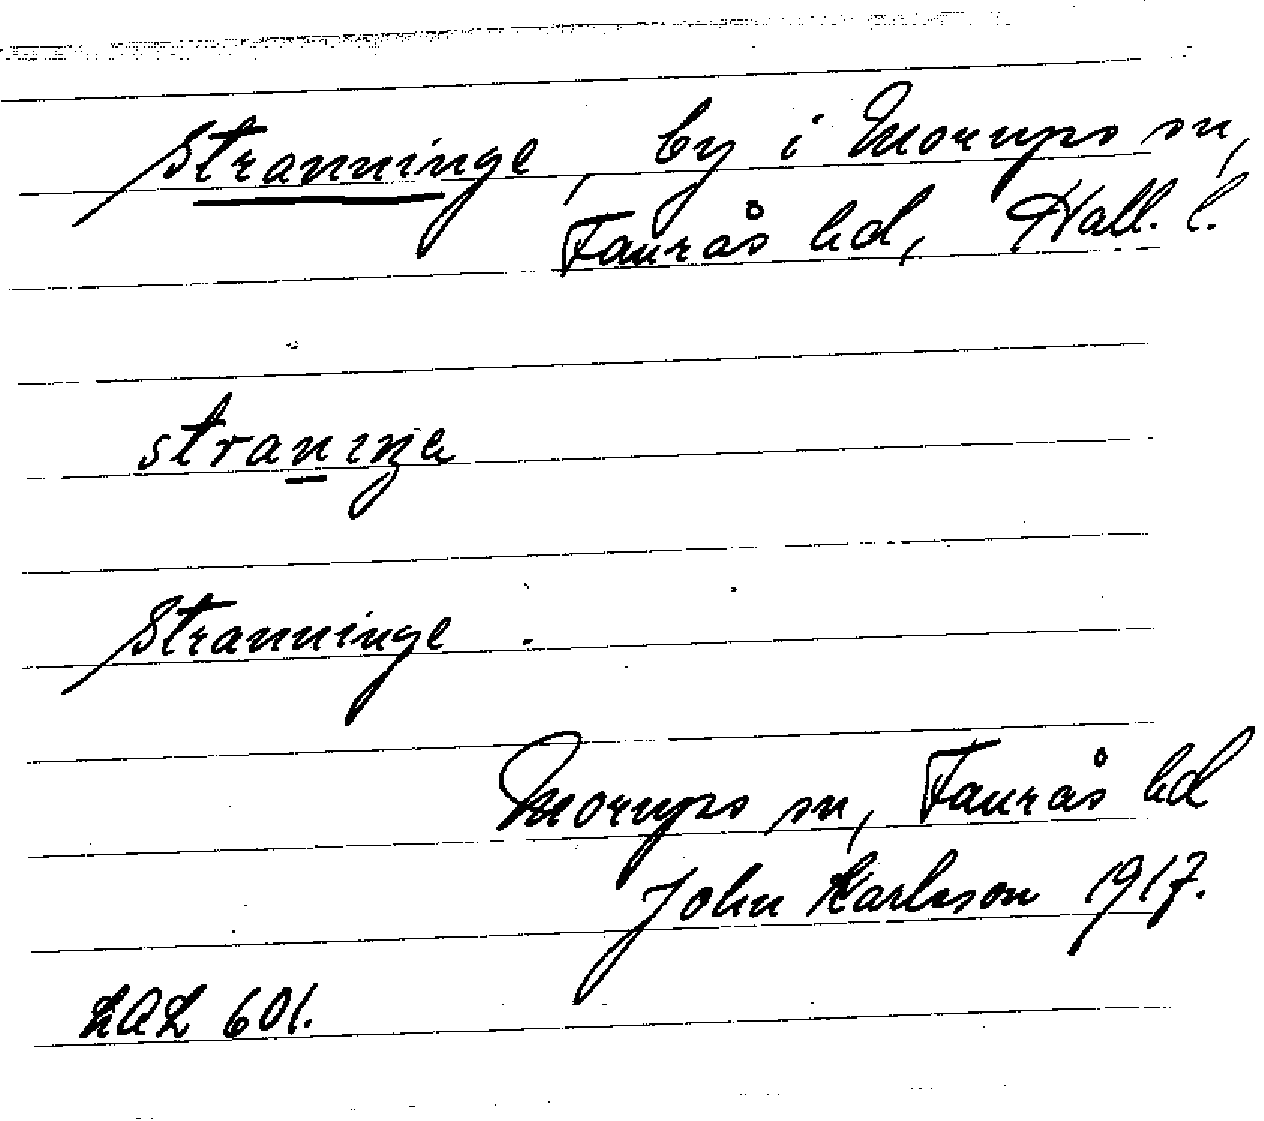 Stranninge, by i Morups sn,
Faurås hd, Hall. l.
stranıŋa
Stranninge.
Morups sn, Faurås hd
John Karlsson 1917.
LAL 601.